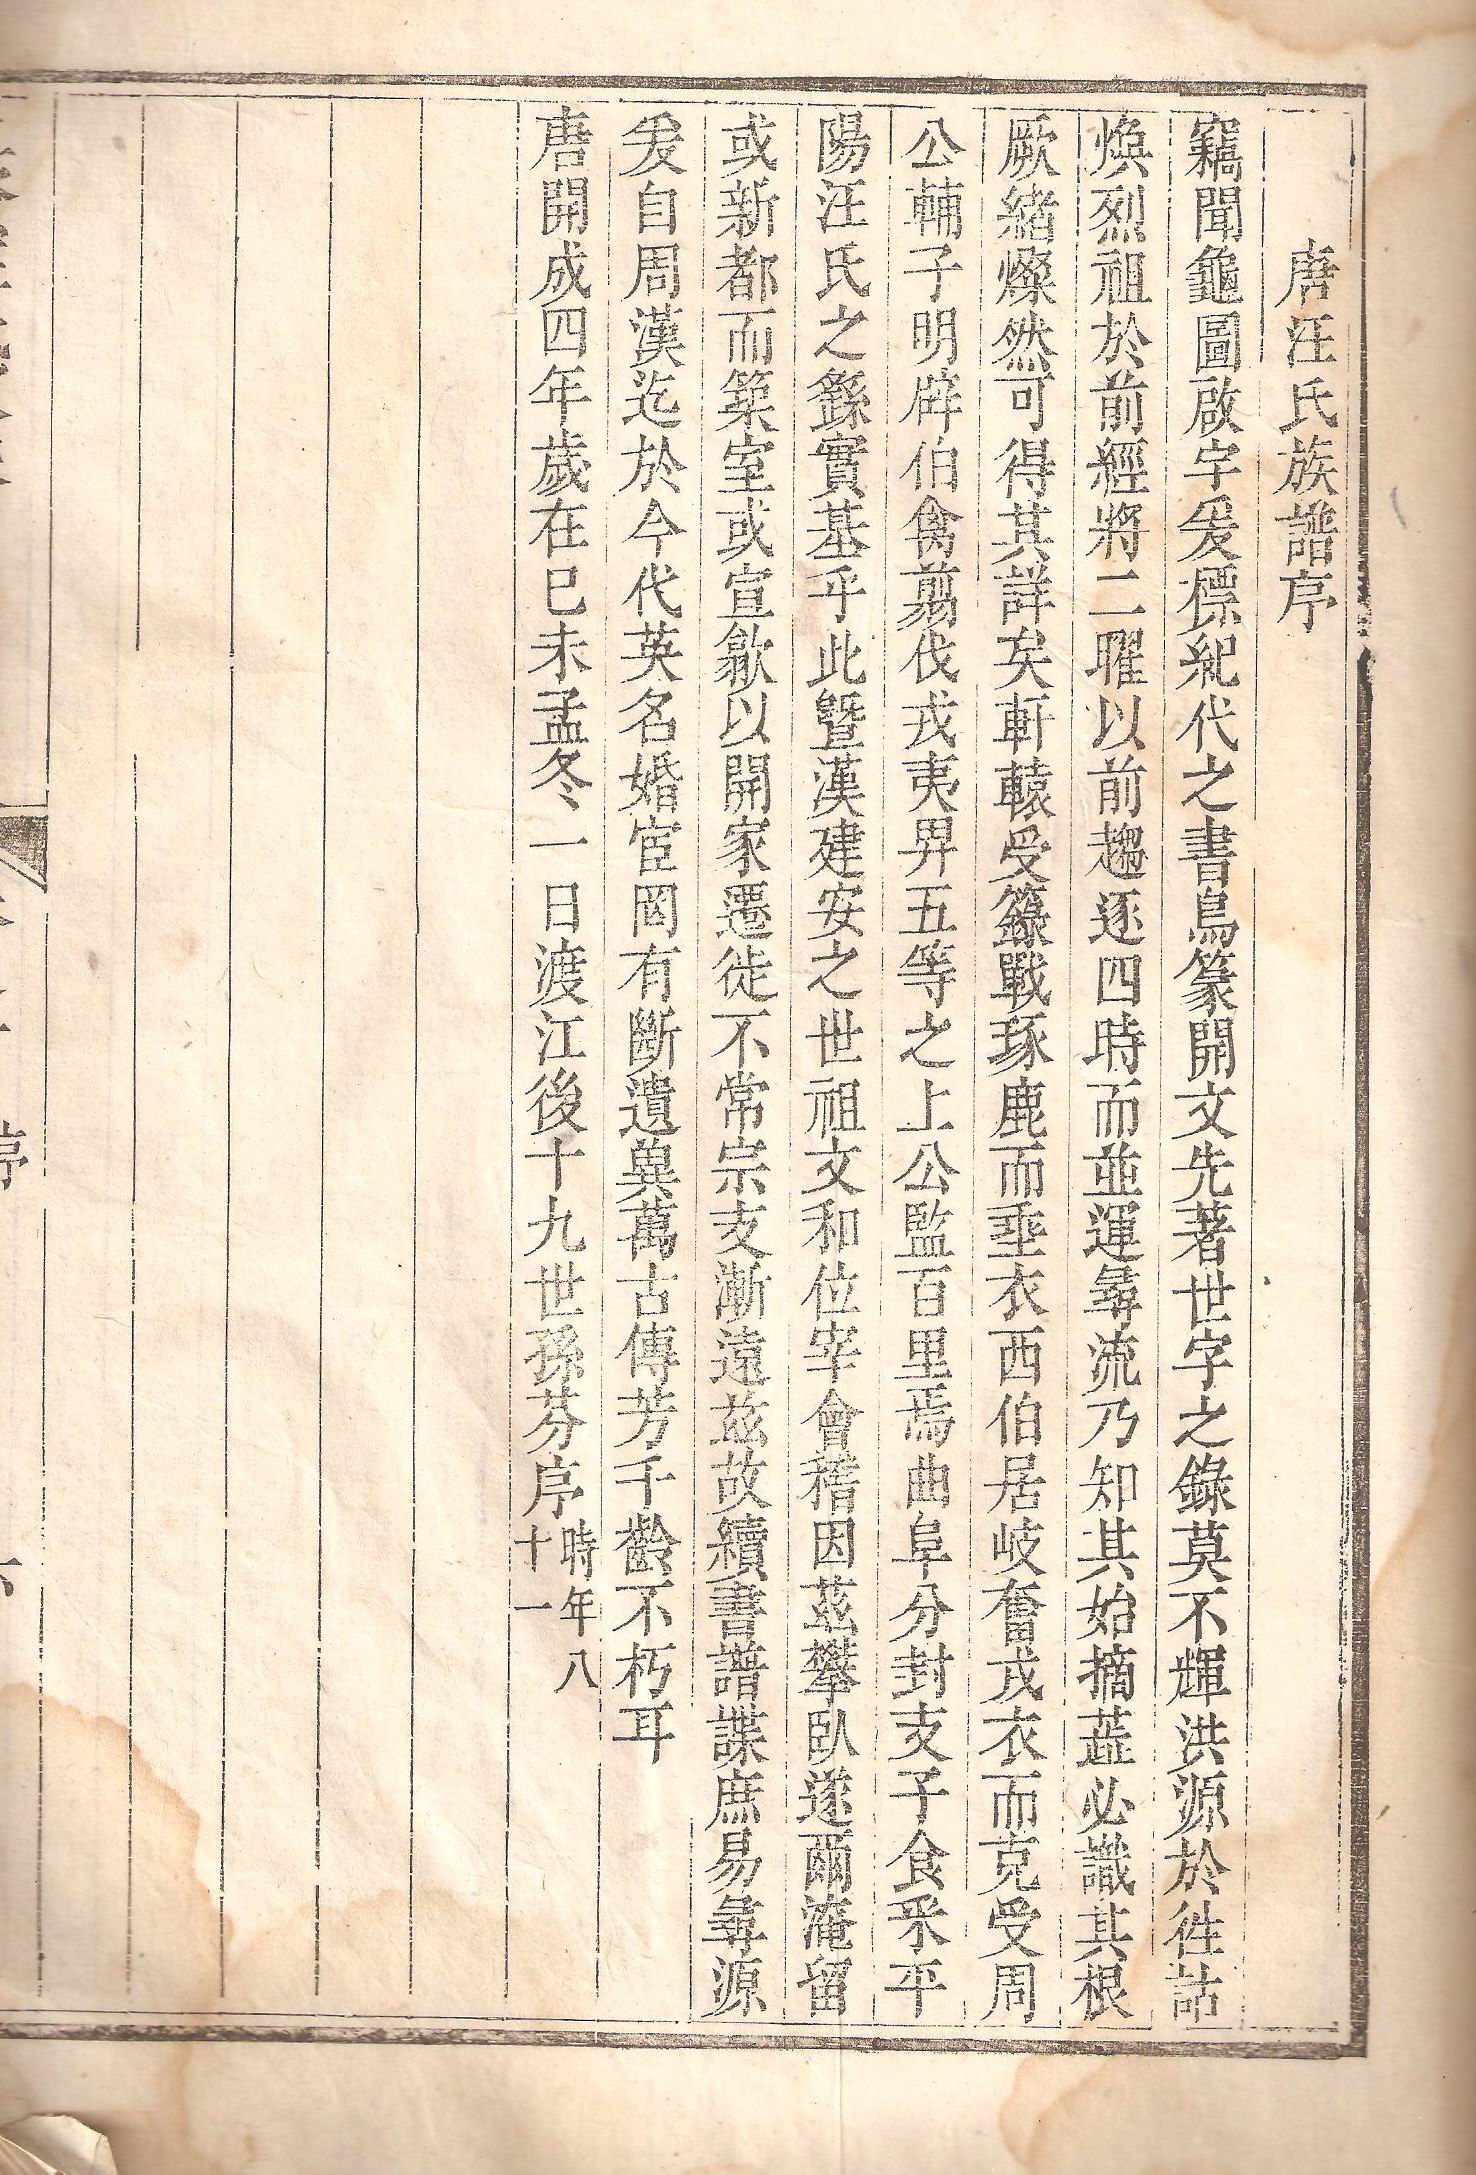 唐汪氏族譜序
竊聞龜圖啟字爰標紀代之書鳥篆開文先著世字之錄莫不輝洪源於徃誥
煥烈祖於前經將二曜以前趨逐四時而並運尋流乃知其始摘蕋必識其根
厥緒燦然可得其詳矣軒轅受籙戰琢鹿而垂衣西伯居岐奮戎衣而克受周
公輔子明辟伯禽翦伐戎夷畀五等之上公監百里焉曲阜分封支子食釆平
陽汪氏之繇實基乎此暨漢建安之世祖文和位宰會稽因茲攀臥遂爾淹留
或新都而築室或宣歙以開家遷徙不常宗支漸遠茲故續書譜諜庶易尋源
爰自周漢迄於今代英名婚宦罔有斷遺兾萬古傳芳千齡不朽耳
唐開成四年歲在巳未孟冬一日渡江後十九世孫芬序
時年八
十一
序
六